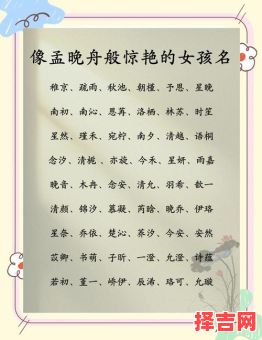 像孟晚舟般惊艳的女孩名
稚京、疏雨、秋池、朝槿、于恩、星晚
南初、南沁、恩苒、洛栖、林苏、时笙
星然、瑾禾、宛柠、南夕、清越、语桐
念汐、清栀、亦旋、今禾、星妍、雨嘉
晚音、木冉、念安、清允、羽希、歆一
清颜、锦汐、慕凝、芮晗、晚乔、伊珞
星奈、乔依、楚沁、荞汐、今安、安然
苡卿、书萌、子昕、一澄、允澄、诗蕴
若初、堇一、峤伊、辰浠、珞可、允璇
择吉网